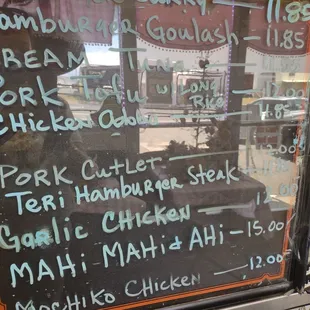 11.85
Hamburger Goulash - 11.85
CREAM TUNA
PORK TOFU W/ LONG RICE
CHICKEN ADOBO 11.85
PORK CUTLET 12.00
Teri Hamburger Steak
GARLIC CHICKEN 12.00
MAHI-MAHI & AHI - 15.00
MOCHIKO CHICKEN - 12.00